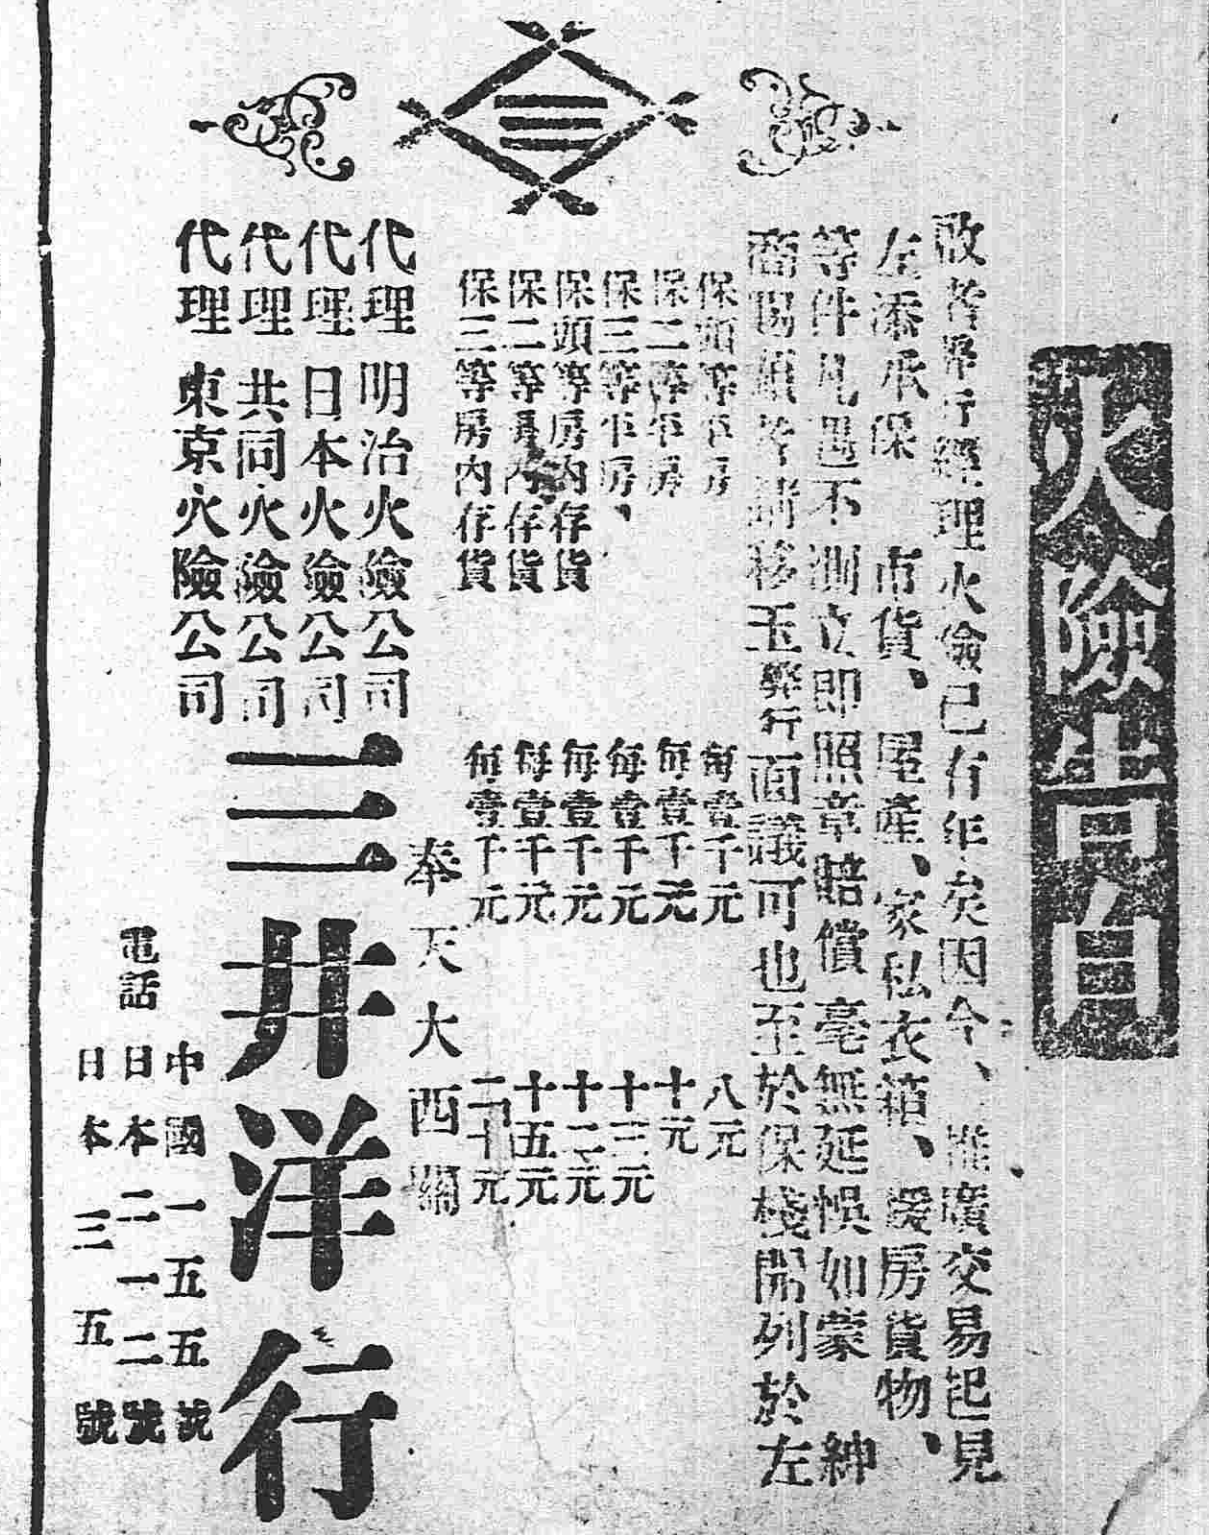 火險告白
敬者弊行經理火險已有年矣因今、推廣交易起見
左添承保 市貨、屋產、家私衣箱、煖房貨物、
等件凡遇不測立即照章賠償毫無延悞如蒙 紳
商賜顧者請移玉弊行面議可也至於保棧開列於左
保頭等平房 每壹千元 八元
保二等平房 每壹千元 十元
保三等平房、 每壹千元 十三元
保頭等房內存貨 每壹千元 十二元
保二等房內存貨 每壹千元 十五元
保三等房內存貨 每壹千元 二十元
奉天大西關
代理 明治火險公司
代理 日本火險公司
代理 共同火險公司
代理 東京火險公司
三井洋行
中國 一五五號
電話 日本 二一二號
日本 三五號